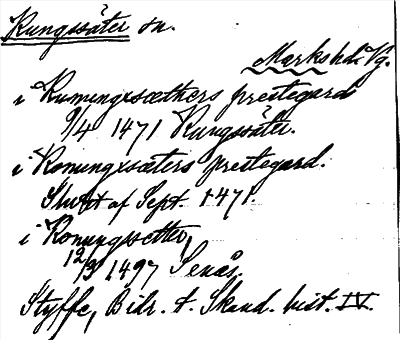 Kungssäter sn.
Markshd. Vg.
i Kunungxsæthers prestegard
9/4 1471 Kungssäter.
i Konungxsæters prestegard.
Slutet af Sept. 1471.
i Konungssetter,
12/9 1497 Senäs.
Styffe, Bidr. t. Skand. hist. IV.